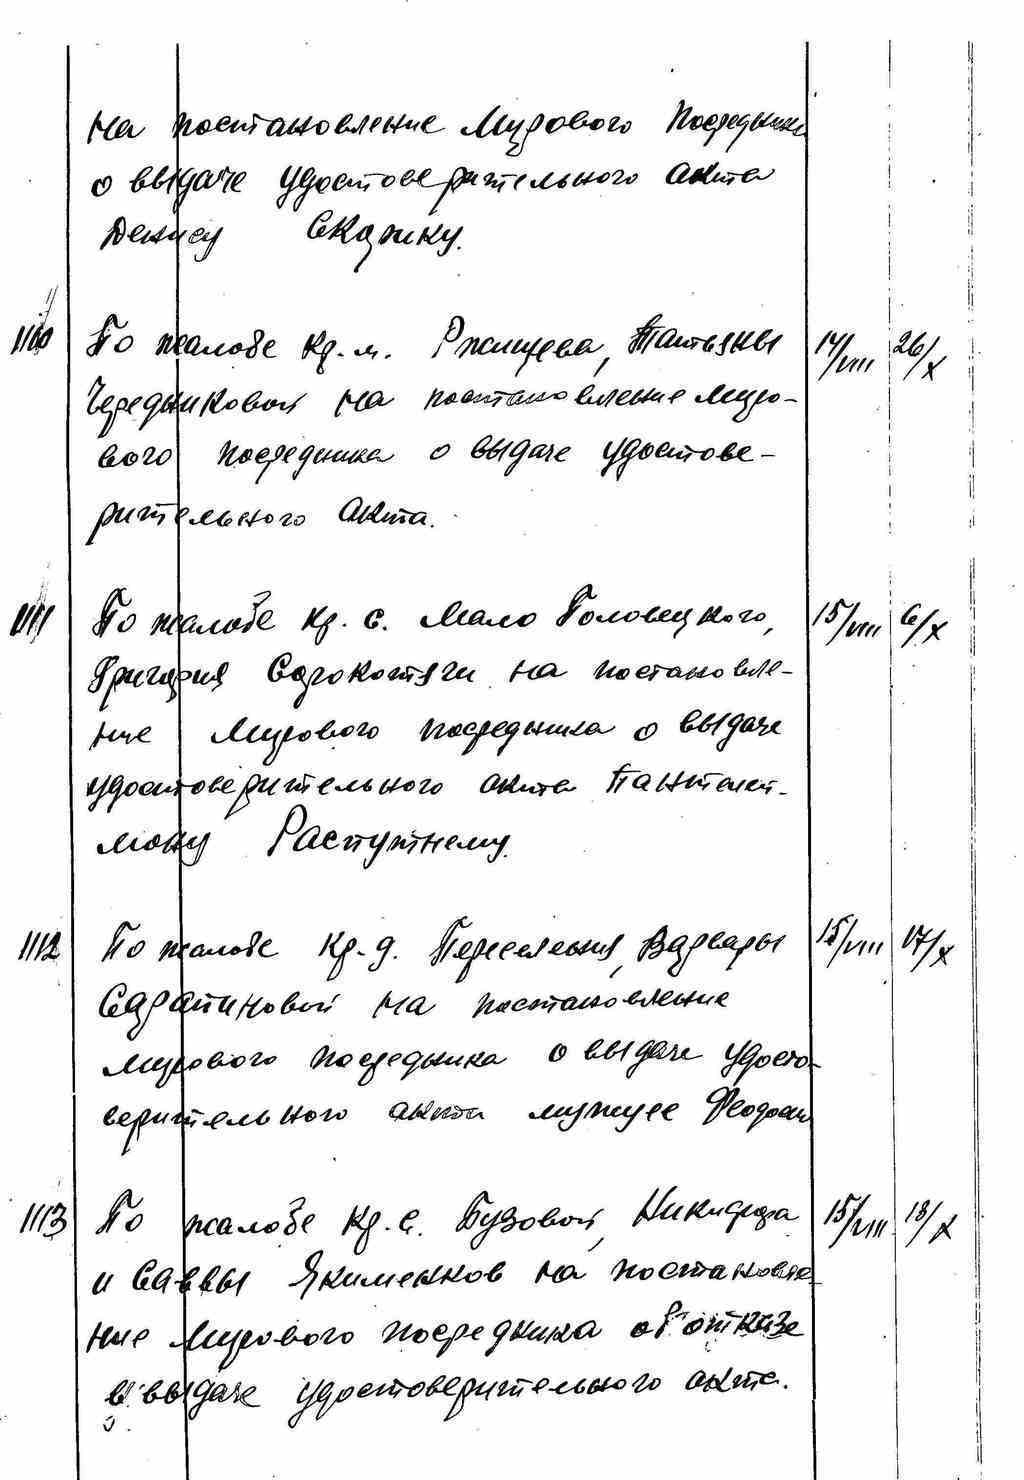 на постановление Мирового Посредника
о выдаче удостоверительного акта
Денису Скорику.
1110 По жалобе кр. м. Ржищева, Татьяны 14/VIII 26/X
Чередниковой на постановление миро-
вого посредника о выдаче удостове-
рительного акта.
1111 По жалобе кр. с. Мало Половецкого, 15/VIII 6/X
Григория Сорокотяги на постановле-
ние Мирового посредника о выдаче
удостоверительного акта Пантелей-
мону Распутнему.
1112 По жалобе кр. д. Переселения, Варвары 15/VIII 17/X
Сарапиновой на постановление
мирового посредника о выдаче удосто-
верительного акта мужу ее Феодосию
1113 По жалобе кр. с. Бузовой, Никифора 15/VIII 18/X
и Саввы Якименков на постановле-
ние Мирового посредника об отказе
в выдаче удостоверительного акта.